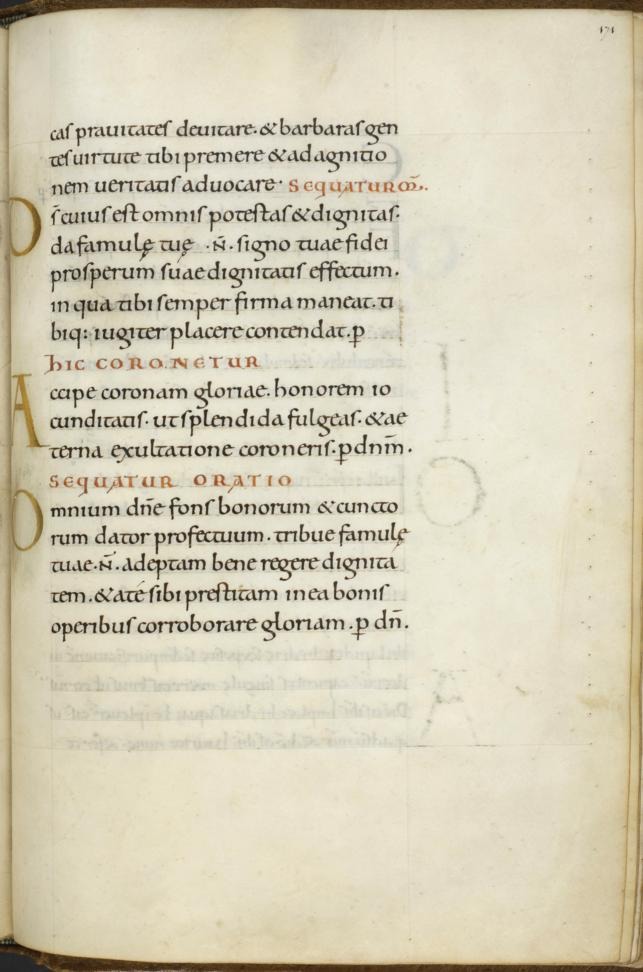 171
cas prauitates deuitare. & barbaras gen
tes uirtute tibi premere & ad agnitio
nem ueritatis aduocare. SEQUATUR OR̄.
D s̄ cuius est omnis potestas & dignitas.
da famulę tuę .N̄. signo tuae fidei
prosperum suae dignitatis effectum.
in qua tibi semper firma maneat. ti
biq: iugiter placere contendat. p̄
HIC CORONETUR
Accipe coronam gloriae. honorem io
cunditatis. ut splendida fulgeas. & ae
terna exultatione coroneris. p̄ dnm̄.
SEQUATUR ORATIO
Omnium dn̄e fons bonorum & cuncto
rum dator profectuum. tribue famulę
tuae .N̄. adeptam bene regere dignita
tem. & a té sibi prestitam in ea bonis
operibus corroborare gloriam. p̄ dn̄.